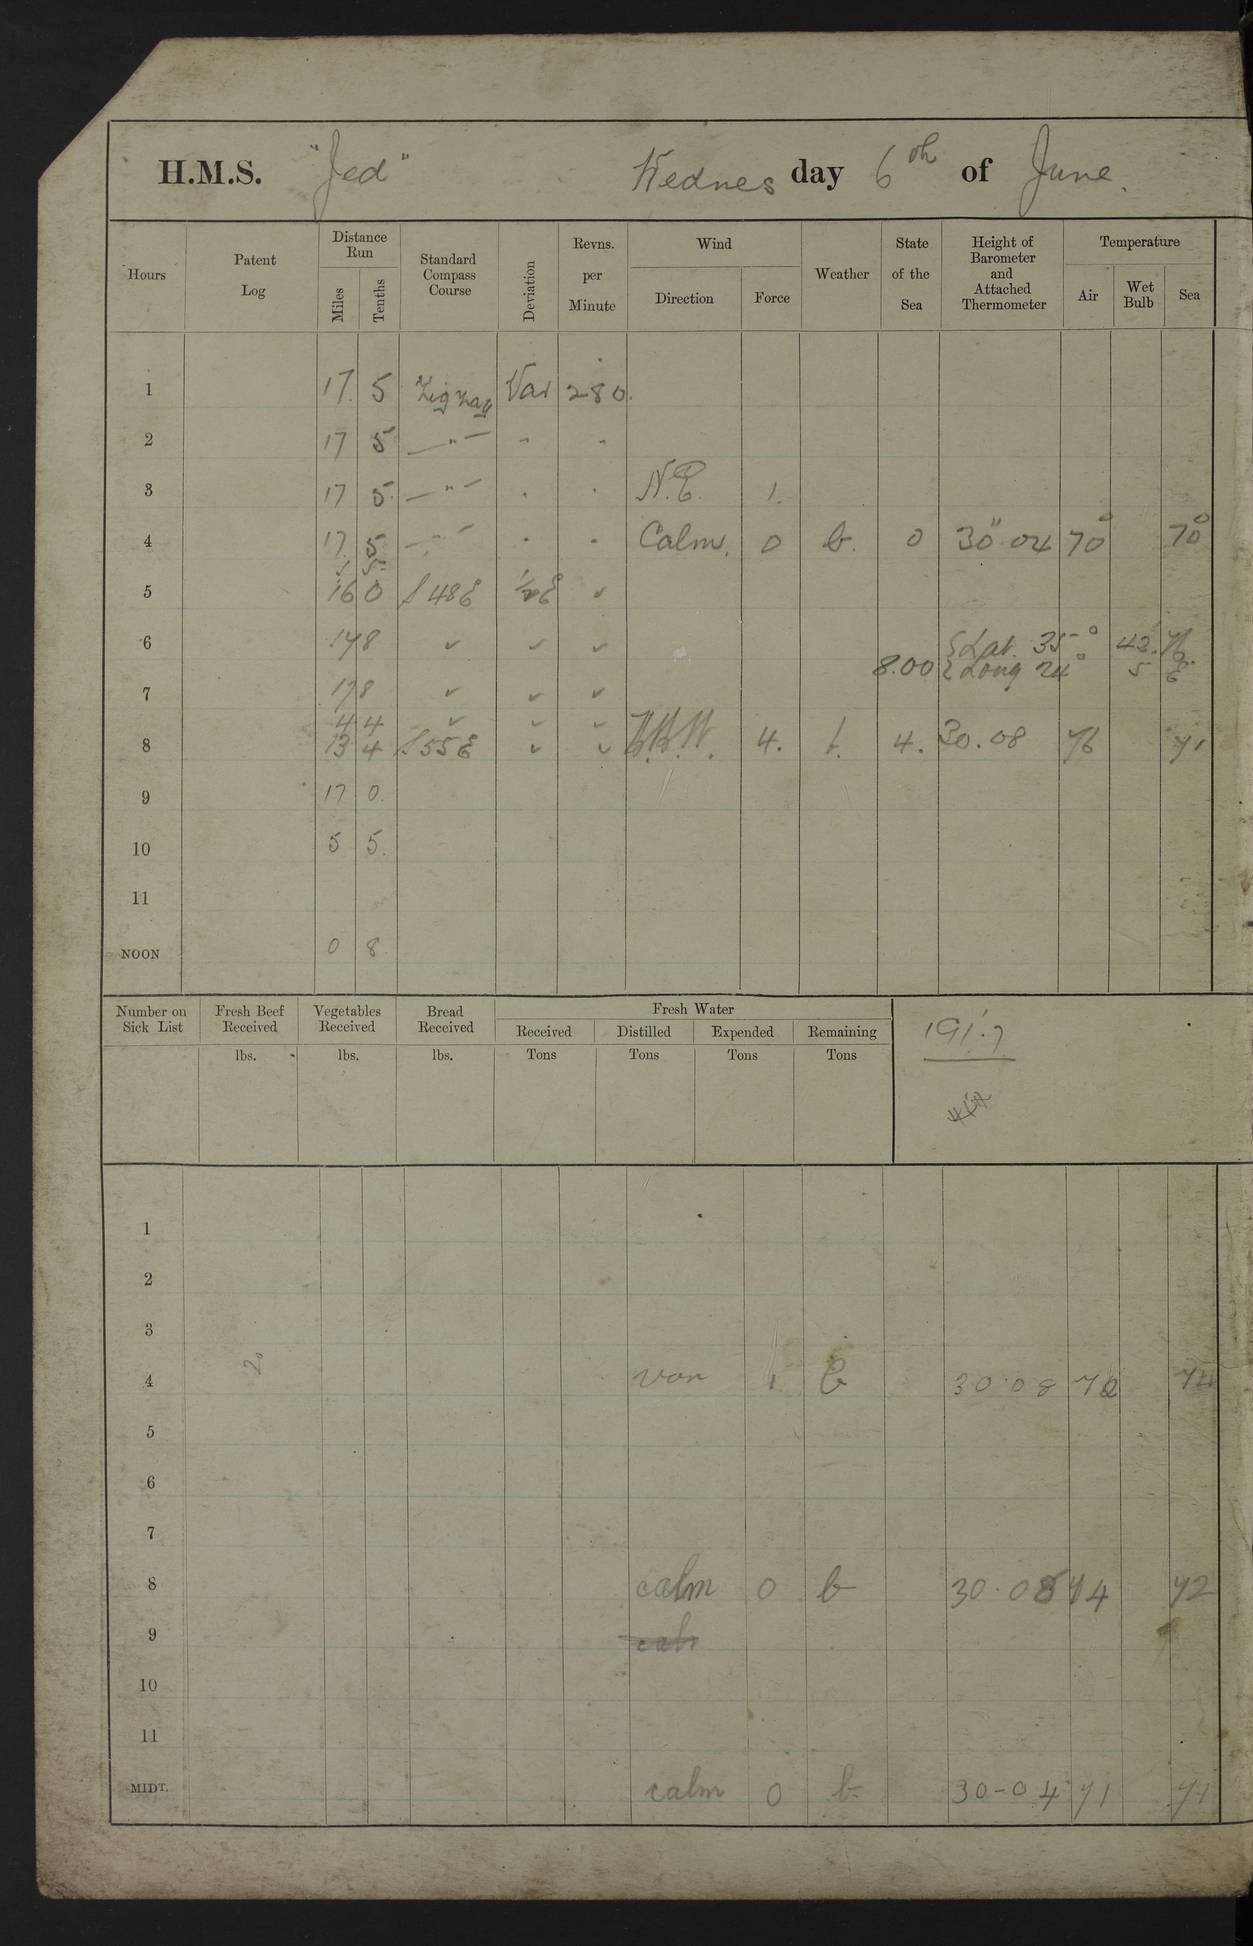 H.M.S. "Jed" Wednes day 6th of June.
Hours Patent Log Distance Run Miles Tenths Standard Compass Course Deviation Revns. per Minute Wind Direction Force Weather State of the Sea Height of Barometer and Attached Thermometer Temperature Air Wet Bulb Sea
1 17. 5 Zig zag Var 280.
2 17 5 —"— " "
3 17 5. —"— " " N.E. 1.
4 17 5 —"— " " Calm. 0 b. 0 30" 04 70° 70°
5 5
5 16 0 S 48 E ½ E ✓
6 17 8 ✓ ✓ ✓ Lat. 35° 43.
8.00 Long 24° 5 E
7 17 8 ✓ ✓ ✓
4 4 ✓ ✓ ✓
8 13 4 S 55 E ✓ ✓ 4. b. 4. 30.08 76 71
9 17 0.
10 5 5.
11
NOON 0 8.
Number on Sick List Fresh Beef Received Vegetables Received Bread Received Fresh Water
Received Distilled Expended Remaining
lbs. lbs. lbs. Tons Tons Tons Tons
191.7
1
2
3
4 var 1 b 30.08 72 72
5
6
7
8 calm 0 b 30.08 74 72
9
10
11
MIDT. calm 0 b 30-04 71 71